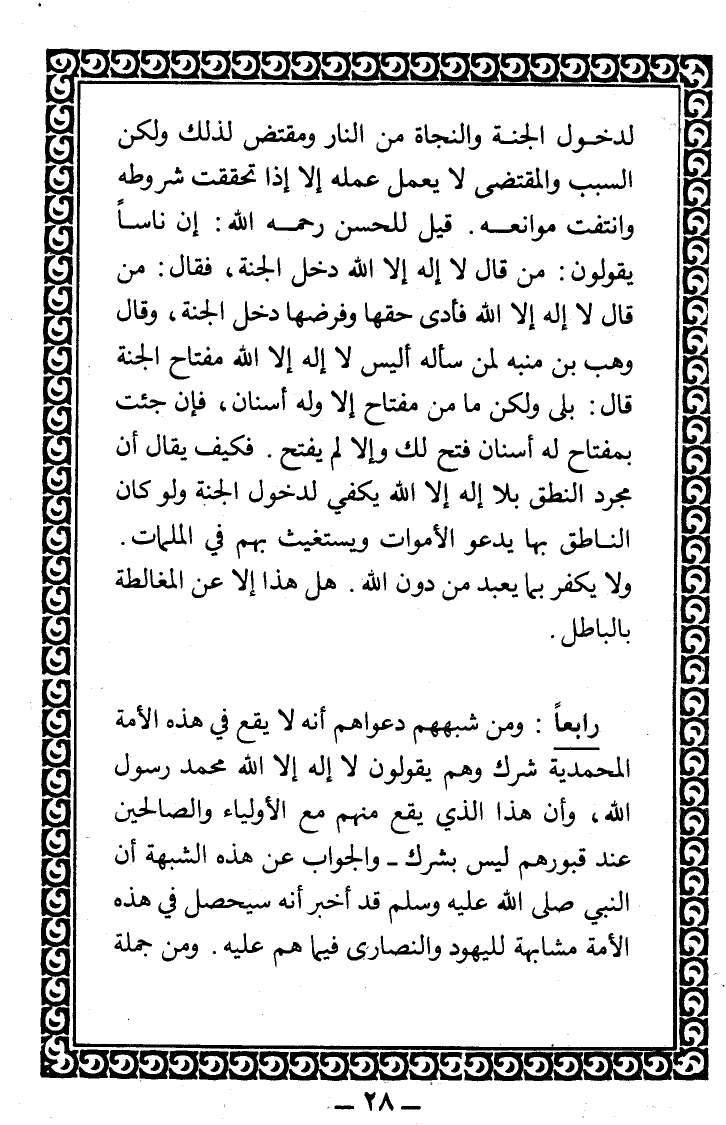 لدخول الجنة والنجاة من النار ومقتض لذلك ولكن
السبب والمقتضى لا يعمل عمله إلا إذا تحققت شروطه
وانتفت موانعه . قيل للحسن رحمه الله : إن ناساً
يقولون : من قال لا إله إلا الله دخل الجنة ، فقال : من
قال لا إله إلا الله فأدى حقها وفرضها دخل الجنة ، وقال
وهب بن منبه لمن سأله أليس لا إله إلا الله مفتاح الجنة
قال : بلى ولكن ما من مفتاح إلا وله أسنان ، فإن جئت
بمفتاح له أسنان فتح لك وإلا لم يفتح . فكيف يقال أن
مجرد النطق بلا إله إلا الله يكفي لدخول الجنة ولو كان
الناطق بها يدعو الأموات ويستغيث بهم في الملمات .
ولا يكفر بما يعبد من دون الله . هل هذا إلا عن المغالطة
بالباطل .
رابعاً : ومن شبههم دعواهم أنه لا يقع في هذه الأمة
المحمدية شرك وهم يقولون لا إله إلا الله محمد رسول
الله ، وأن هذا الذي يقع منهم مع الأولياء والصالحين
عند قبورهم ليس بشرك ـ والجواب عن هذه الشبهة أن
النبي صلى الله عليه وسلم قد أخبر أنه سيحصل في هذه
الأمة مشابهة لليهود والنصارى فيما هم عليه . ومن جملة
ـ ٢٨ ـ